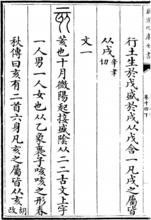 行土生於戊盛於戌从戊含一凡戌之屬皆
从戌辛聿切
文一
荄也十月微陽起接盛陰从二二古文上字
一人男一人女也从乙象裹子咳咳之形春
秋傳曰亥有二首六身凡亥之屬皆从亥胡改切